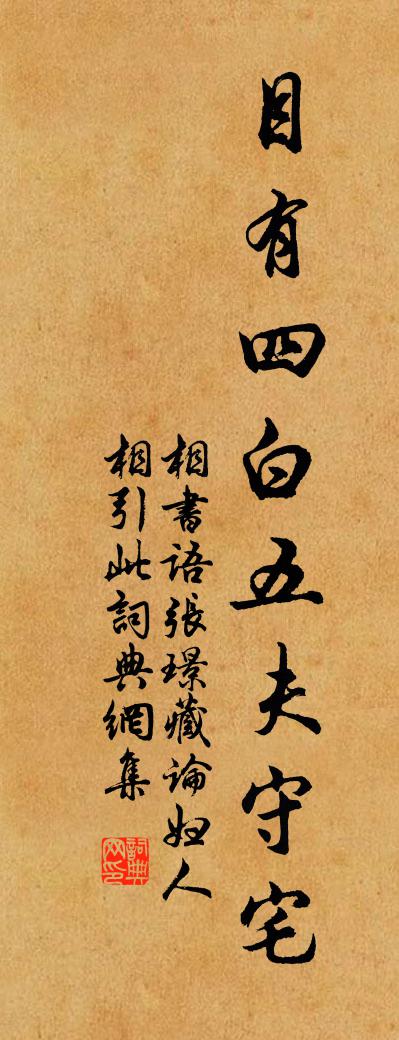 目有四白五夫守宅
相書語張璟藏論妲人
相引此詞典網集
詞典
网印